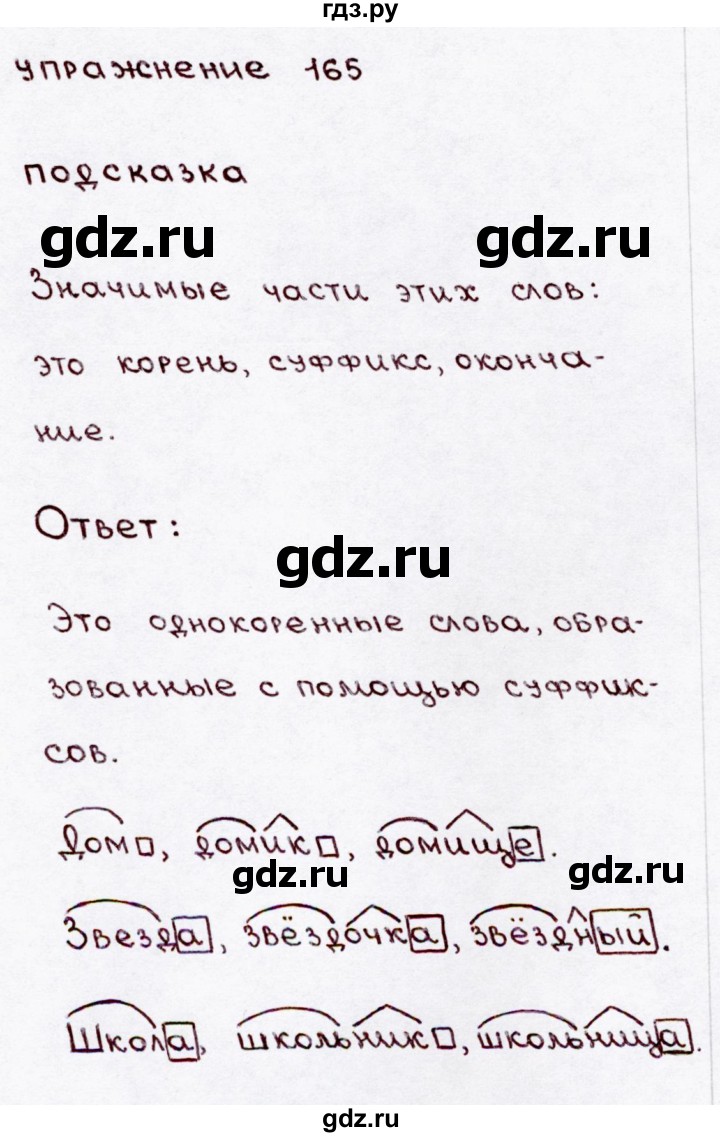 гдз.ру
упражнение 165
подсказка
gdz.ru gdz.ru
Значимые части этих слов:
это корень, суффикс, оконча-
ние.
Ответ:
gdz.ru
Это однокоренные слова, обра-
зованные с помощью суффик-
сов.
Дом, домик, домище.
gdz.ru gdz.ru
Звезда, звёздочка, звёздный.
Школа, школьник, школьница.
gdz.ru